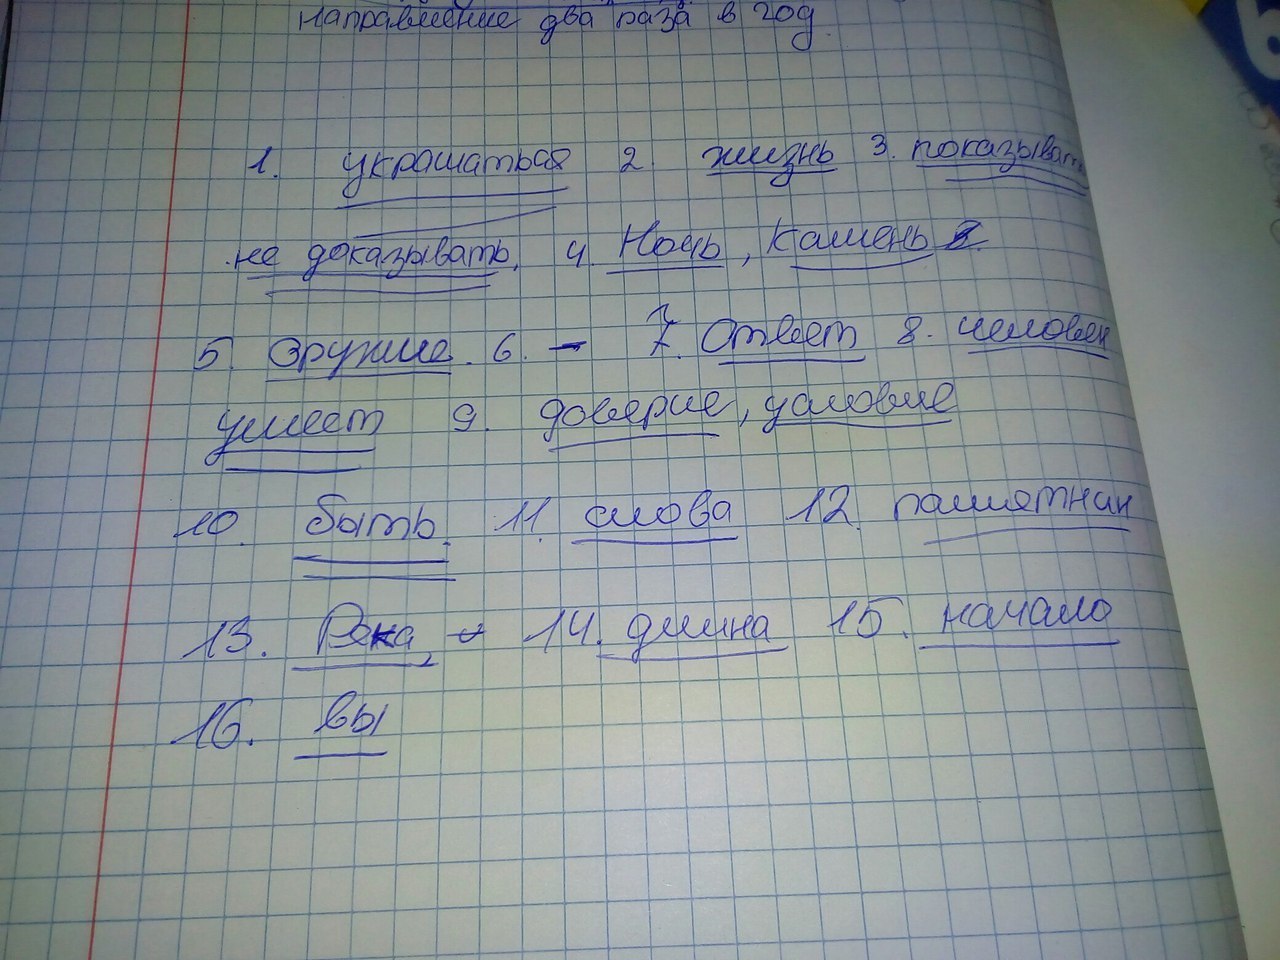 направление два раза в год.
1. украшаться 2. жизнь 3. показывать
не доказывать, 4. Ночь, камень
5. Оружие. 6. - 7. Ответ 8. человек
умеет 9. доверие, условие
10. быть. 11. слова 12. памятник
13. Река, 14. длина 15. начало
16. вы